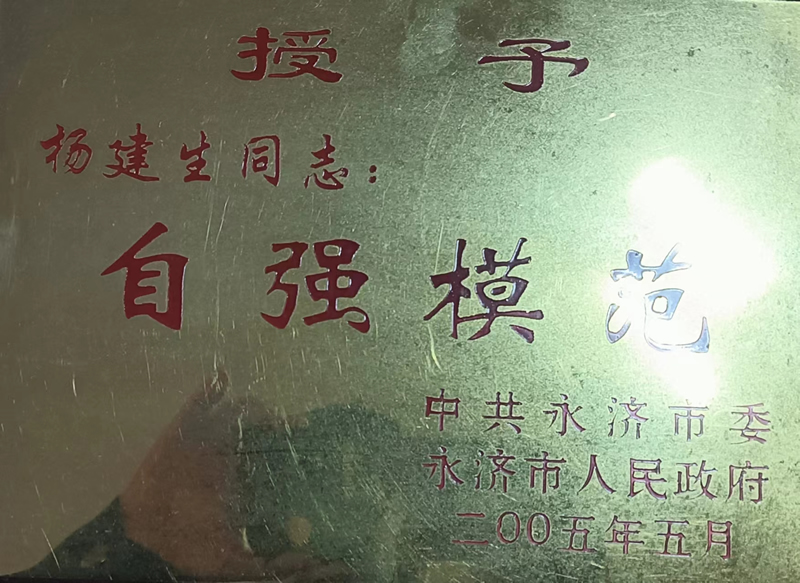 授予
杨建生同志：
自强模范
中共永济市委
永济市人民政府
二〇〇五年五月